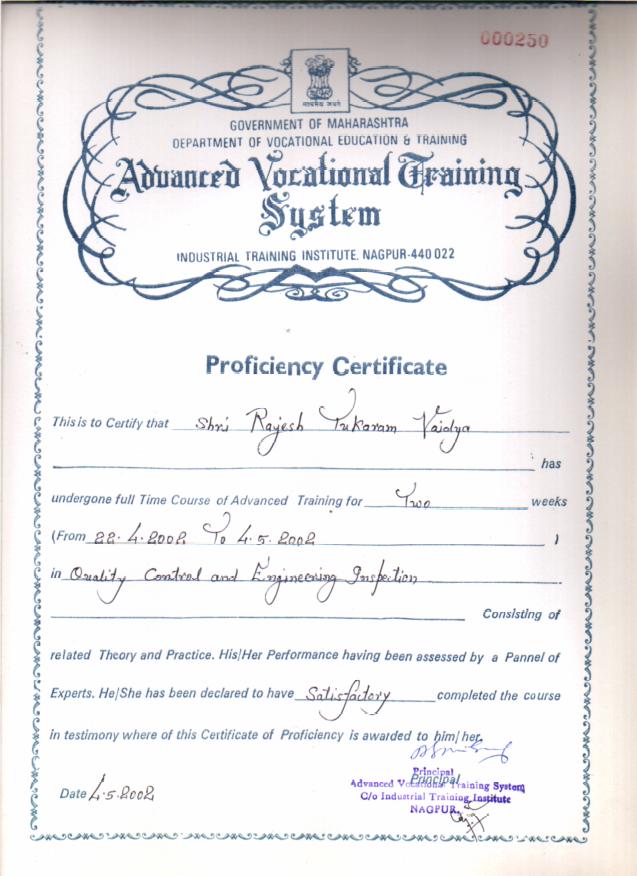 000250
सत्यमेव जयते
GOVERNMENT OF MAHARASHTRA
DEPARTMENT OF VOCATIONAL EDUCATION & TRAINING
Advanced Vocational Training
System
INDUSTRIAL TRAINING INSTITUTE. NAGPUR-440 022
Proficiency Certificate
This is to Certify that Shri Rajesh Tukaram Vaidya
has
undergone full Time Course of Advanced Training for Two weeks
(From 22.4.2002 To 4.5.2002 )
in Quality Control and Engineering Inspection
Consisting of
related Theory and Practice. His/Her Performance having been assessed by a Pannel of
Experts. He/She has been declared to have Satisfactory completed the course
in testimony where of this Certificate of Proficiency is awarded to him/her.
Principal
Principal
Advanced Vocational Training System
C/o Industrial Training Institute
NAGPUR.
Date 4.5.2002